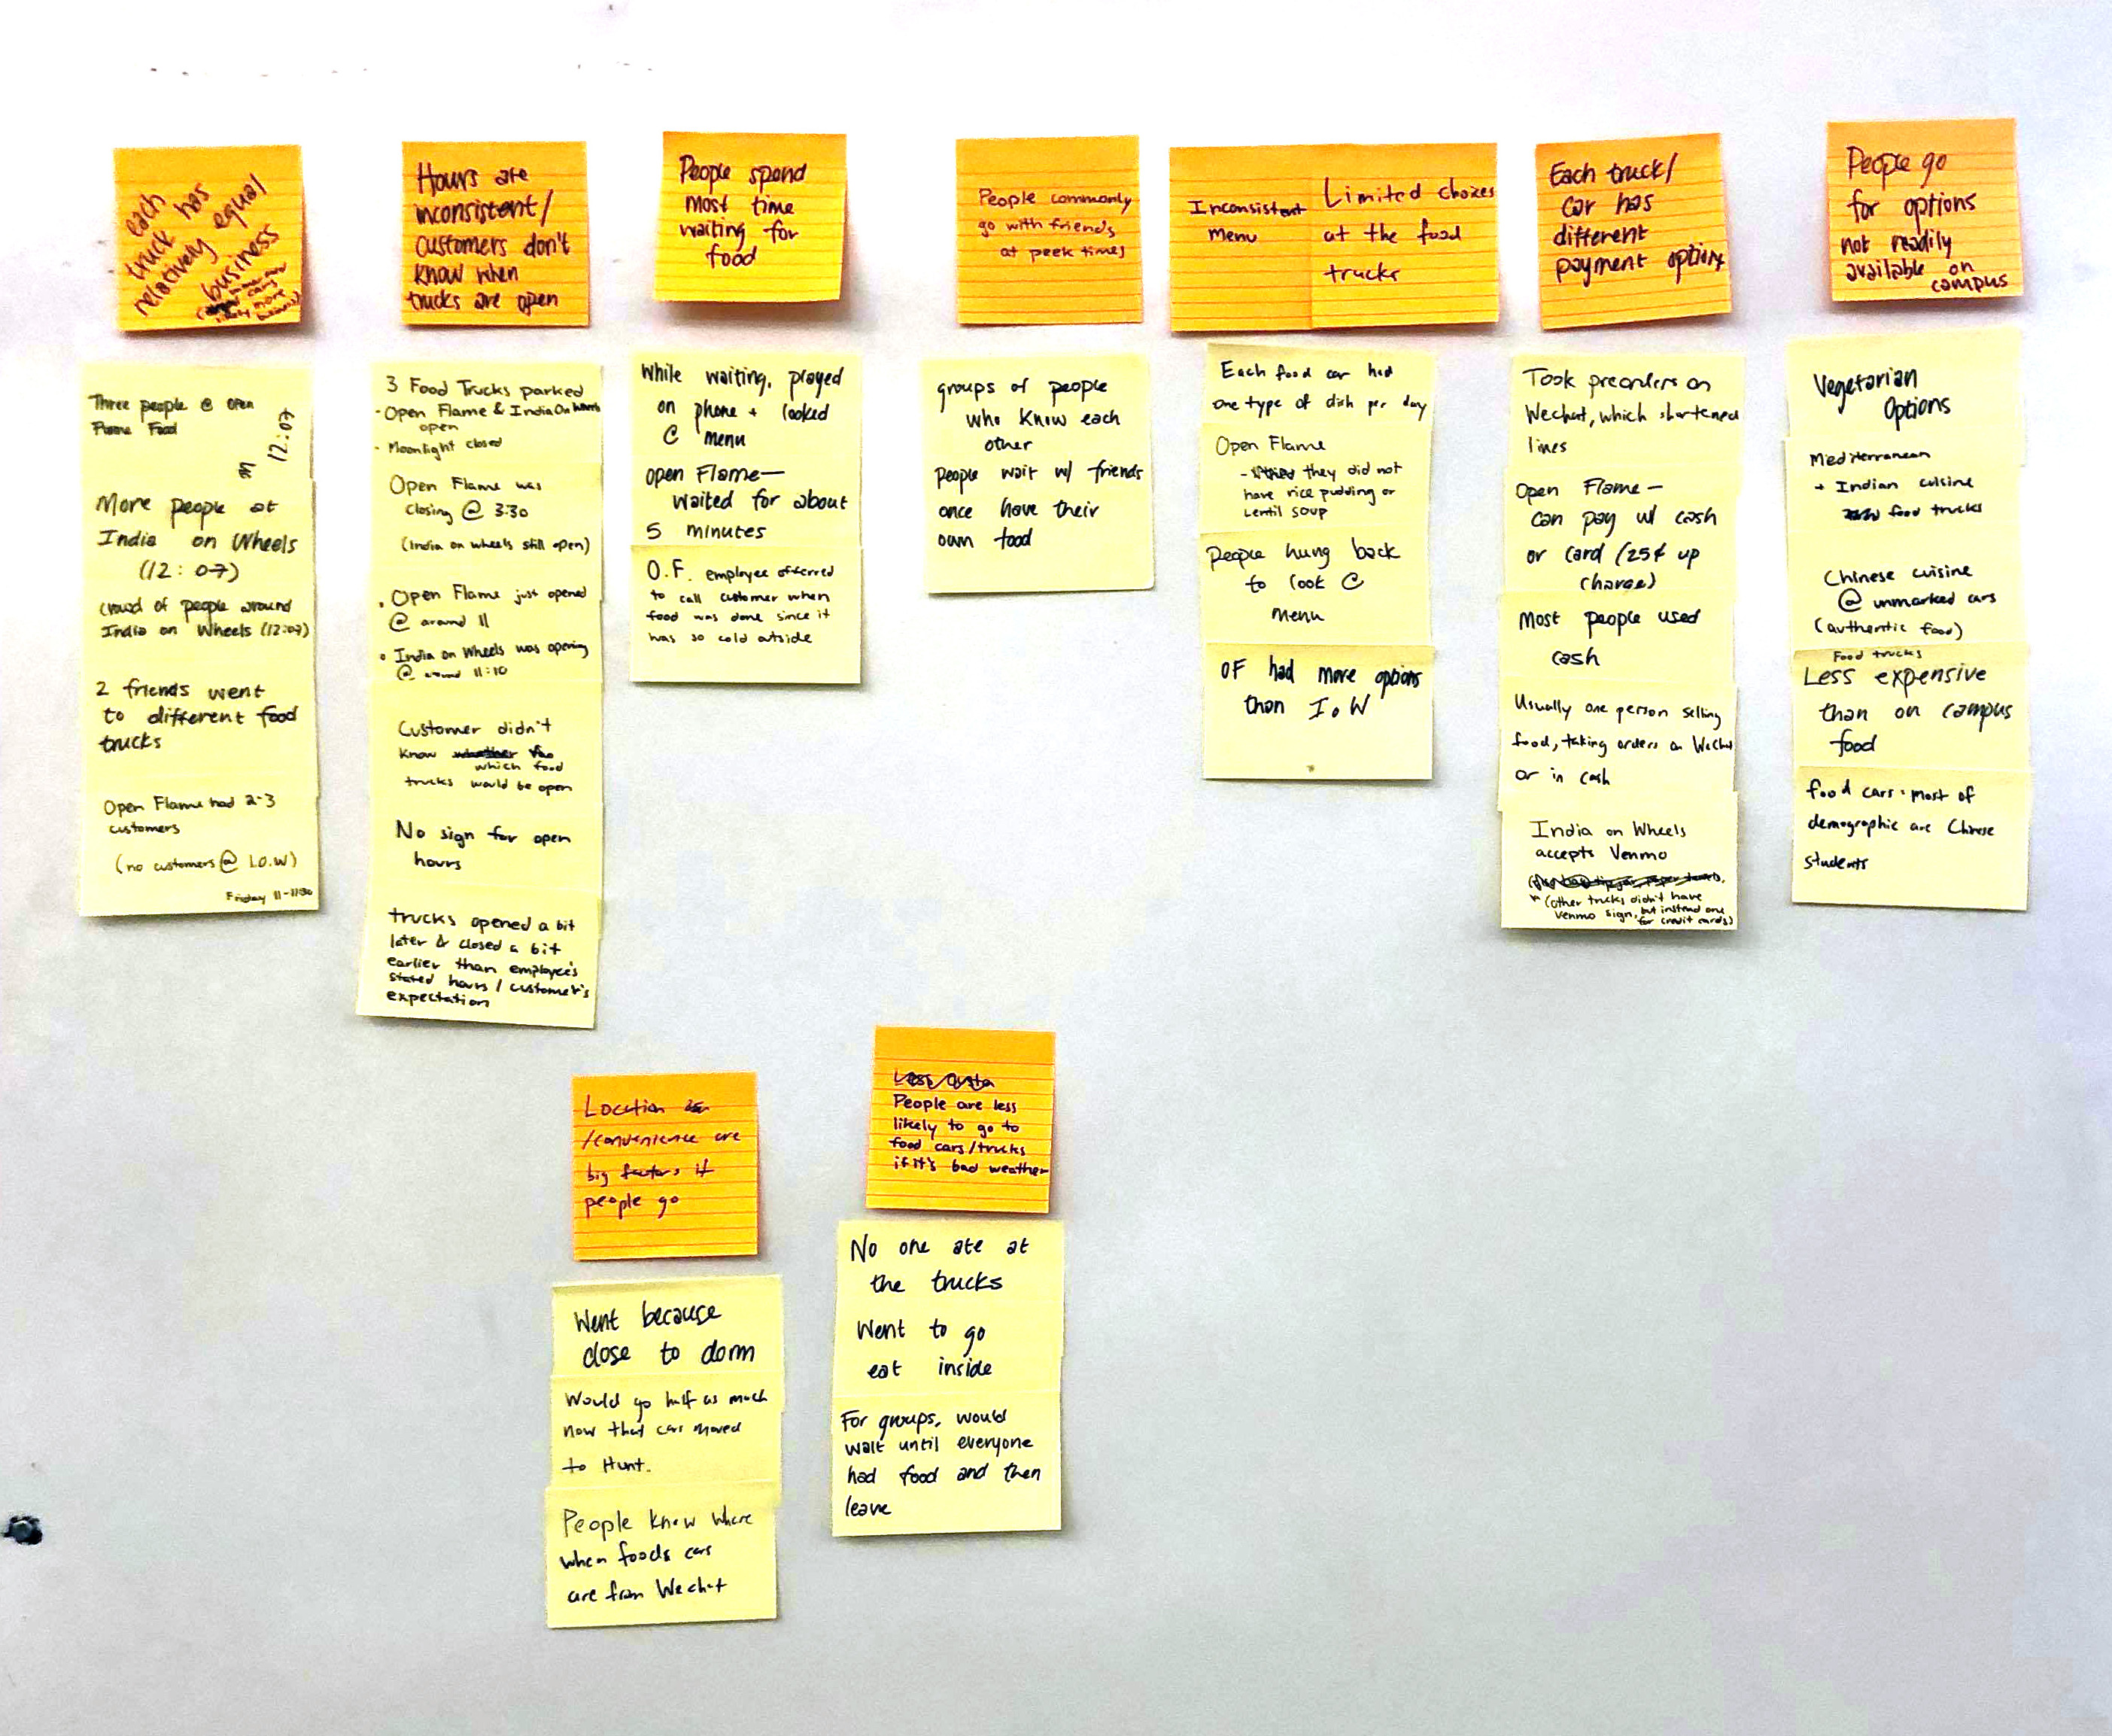 each
truck has
relatively equal
business
Three people @ Open
Flame Food
12:07
More people at
India on Wheels
(12:07)
crowd of people around
India on Wheels (12:07)
2 friends went
to different food
trucks
Open Flame had 2-3
customers
(no customers @ I.O.W)
Friday 11-11:30
Hours are
inconsistent/
customers don't
know when
trucks are open
3 Food Trucks parked
- Open Flame & India On Wheels
open
- Moonlight closed
Open Flame was
closing @ 3:30
(India on wheels still open)
• Open Flame just opened
@ around 11
• India on Wheels was opening
@ around 11:10
Customer didn't
know
which food
trucks would be open
No sign for open
hours
trucks opened a bit
later & closed a bit
earlier than employee's
stated hours / customer's
expectation
People spend
most time
waiting for
food
While waiting, played
on phone + looked
@ menu
Open Flame—
waited for about
5 minutes
O.F. employee offerred
to call customer when
food was done since it
was so cold outside
People commonly
go with friends
at peek times
groups of people
who know each
other
People wait w/ friends
once have their
own food
Inconsistent
Menu
Limited choices
at the food
trucks
Each food car had
one type of dish per day
Open Flame
- they did not
have rice pudding or
Lentil soup
People hung back
to look @
menu
OF had more options
than I.O.W
Each truck/
car has
different
payment options
Took preorders on
Wechat, which shortened
lines
Open Flame—
can pay w/ cash
or card (25¢ up
charge)
Most people used
cash
Usually one person selling
food, taking orders on Wechat
or in cash
India on Wheels
accepts Venmo
(other trucks didn't have
Venmo sign, but instead one
for credit cards)
People go
for options
not readily
available on
campus
Vegetarian
Options
Mediterranean
+ Indian cuisine
food trucks
Chinese cuisine
@ unmarked cars
(authentic food)
Food trucks
Less expensive
than on campus
food
food cars: most of
demographic are Chinese
students
Location
/convenience are
big factors if
people go
Went because
close to dorm
Would go half as much
now that cars moved
to Hunt.
People know where
when foods cars
are from Wechat
People are less
likely to go to
food cars/trucks
if it's bad weather
No one ate at
the trucks
Went to go
eat inside
For groups, would
wait until everyone
had food and then
leave